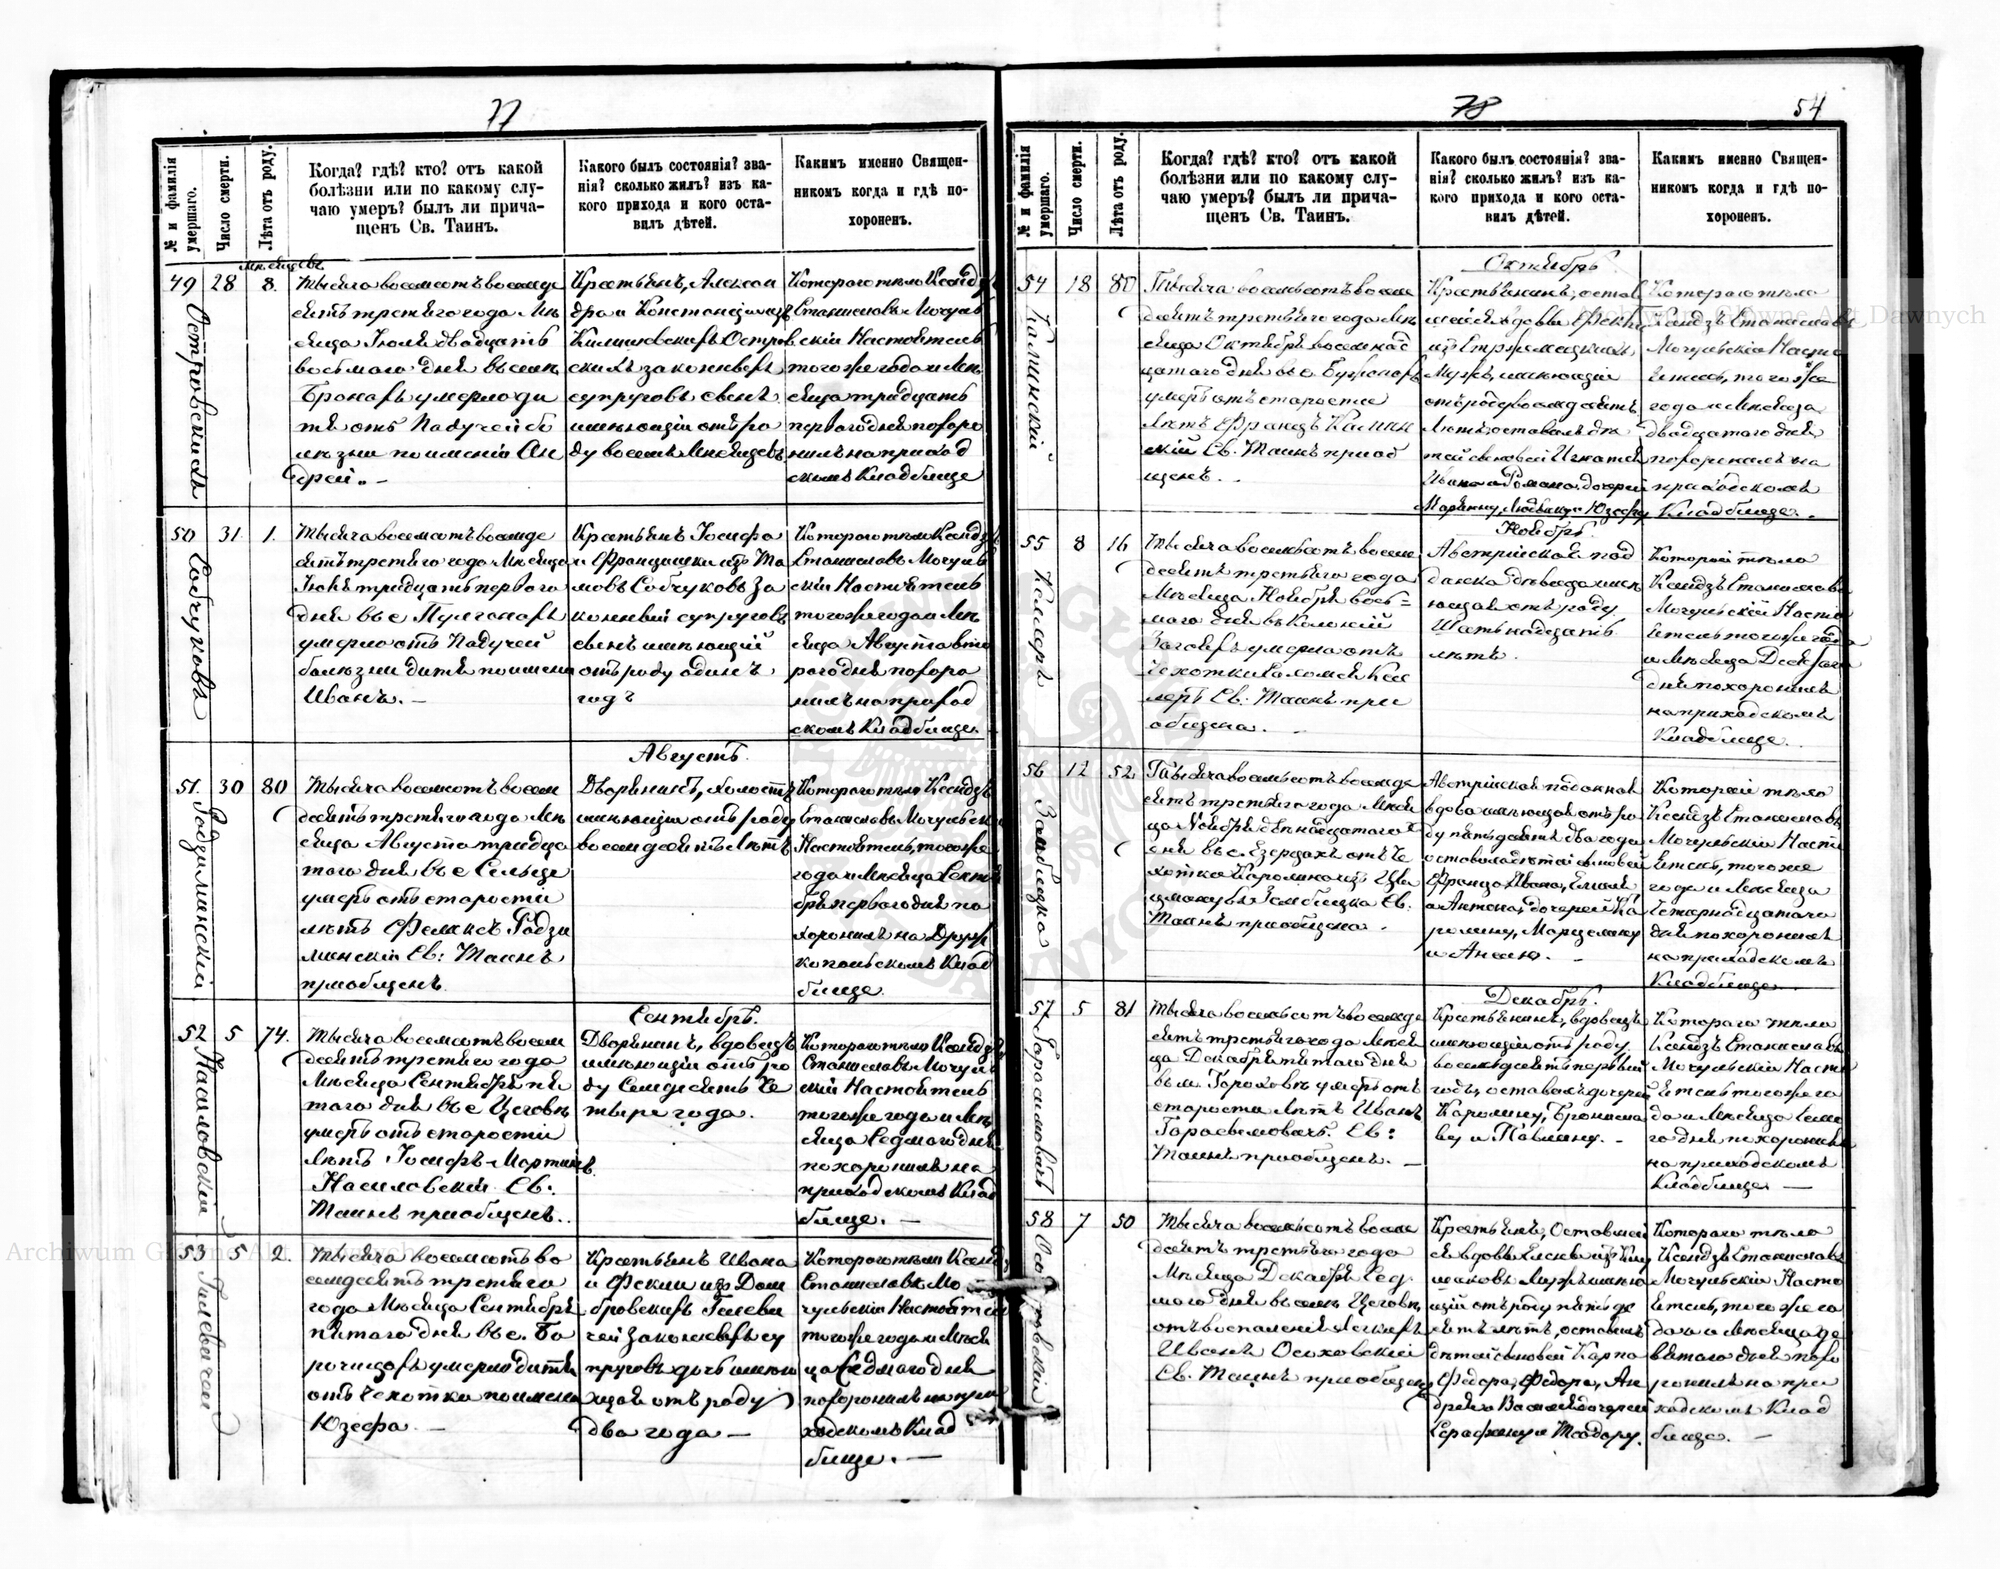 77
№ и фамилія умершаго.
Число смерти.
Лѣта отъ роду.
Когда? гдѣ? кто? отъ какой
болѣзни или по какому слу-
чаю умеръ? былъ ли прича-
щенъ Св. Таинъ.
Какого былъ состоянія? зва-
нія? сколько жилъ? изъ ка-
кого прихода и кого оста-
вилъ дѣтей.
Какимъ именно Священ-
никомъ когда и гдѣ по-
хороненъ.
49
Островскихъ
28
8.
Тысяча восемсотъ восемде
сятъ третяго года Мѣ
сяца Іюля двадцать
восьмаго дня въ селѣ
умерло ди
тя отъ Падучей бо
лѣзни по имени Ан
дрей. —
Крестьянъ, Алексан
дра и Констанціи изъ
Остров
скихъ законныхъ
супруговъ сынъ
имѣющій отъ ро
ду восемь Мѣсяцевъ
Котораго тѣло Ксендзъ
Станиславъ Мочуль
скій Настоятель
тогоже года и Мѣ
сяца тридцать
перваго дня похоро
нилъ на приход
скомъ Кладбище
50
Собчуковъ
31.
1.
Тысяча восемсотъ восемде
сятъ третяго года Мѣсяца
Іюля тридцать перваго
дня въ с
умерло отъ Падучей
болѣзни дитя по имени
Иванъ. —
Крестьянъ Іосифа
и Францишки изъ То
мовъ Собчуковъ за
конныхъ супруговъ
сынъ имѣющій
отъ роду одинъ
годъ
Котораго тѣло Ксендзъ
Станиславъ Мочуль
скій Настоятель
тогоже года и Мѣ
сяца Августа вто
раго дня похоро
нилъ на приход
скомъ Кладбище.
Августъ.
51.
Родзиминскій
30
80
Тысяча восемсотъ восем
десятъ третяго года Мѣ
сяца Августа тридца
таго дня въ с Сельце
умеръ отъ старости
лѣтъ Феликсъ Родзи
минскій Св: Таинъ
приобщенъ.
Дворянинъ, холостъ
имѣющій отъ роду
восемдесятъ Лѣтъ
Котораго тѣло Ксендзъ
Станиславъ Мочульскій
Настоятель, тогоже
года и Мѣсяца Сентя
бря перваго дня по
хоронилъ на Друж
копольскомъ Клад
бище.
Сентябрь.
52
Насиловскій
5
74.
Тысяча восемсотъ восем
десятъ третяго года
Мѣсяца Сентября пя
таго дня въ с Цеговѣ
умеръ отъ старости
лѣтъ Іосифъ-Мартинъ
Насиловскій Св:
Таинъ приобщенъ..
Дворянинъ, вдовецъ
имѣющій отъ ро
ду Семдесятъ че
тыре года.
Котораго тѣло Ксендзъ
Станиславъ Мочуль
скій Настоятель
тогоже года и Мѣ
сяца Седмаго дня
похоронилъ на
приходскомъ Клад
бище. —
53
5
2.
Тысяча восемсотъ во
семдесятъ третяго
года Мѣсяца Сентября
пятаго дня въ с.
умерло дитя
отъ чахотки по имени
Юзефа. —
Крестьянъ Ивана
и Феклы изъ Дом
бровскихъ
законныхъ су
пруговъ дочь имѣю
щая отъ роду
два года —
Котораго тѣло Ксендзъ
Станиславъ Мо
чульскій Настоятель
тогоже года и Мѣся
ца Седмаго дня
похоронилъ на при
ходскомъ Клад
бище. —
78
54
№ и фамилія умершаго.
Число смерти.
Лѣта отъ роду.
Когда? гдѣ? кто? отъ какой
болѣзни или по какому слу-
чаю умеръ? былъ ли прича-
щенъ Св. Таинъ.
Какого былъ состоянія? зва-
нія? сколько жилъ? изъ ка-
кого прихода и кого оста-
вилъ дѣтей.
Какимъ именно Священ-
никомъ когда и гдѣ по-
хороненъ.
Октябрь.
54
Калинскій
18
80
Тысяча восемьсотъ восем
десятъ третьяго года Мѣ
сяца Октября восемнад
цатаго дня въ с.
умеръ отъ старости
лѣтъ Францъ Калин
скій Св. Таинъ приоб
щенъ. .
Крестьянинъ, остав
Мужъ, имѣющій
отъ роду восемдесятъ
Лѣтъ, оставилъ дѣ
тей сыновей Игнатія
Ивана и Романа. дочерей
Марянну, Людвику и Юзефу
Котораго тѣло
Ксендзъ Станиславъ
Мочульскій Насто
ятель, тогоже
года и Мѣсяца
двадцатаго дня
похоронилъ на
приходскомъ
Кладбище.
Ноябрь.
55
Келлеръ
8
16
Тысяча восемьсотъ восем
десятъ третьяго года
Мѣсяца Ноября вось=
маго дня въ Колоніи
умерла отъ
чахотки Саломея Кел
леръ Св: Таинъ при
общена.
Австрійская под
данка дѣвица имѣ
ющая отъ роду
Шестьнадцать
лѣтъ.
Которой тѣло
Ксендзъ Станиславъ
Мочульскій Насто
ятель тогоже года
и Мѣсяца Десятаго
дня похоронилъ
на приходскомъ
Кладбище.
56
Замблицка
12
52
Тысяча восемьсотъ восемде
сятъ третьяго года Мѣся
ца Ноября двѣнадцатаго
дня въ с. Езерцахъ отъ че
хотки Каролина изъ
Замблицка Св:
Таинъ приобщена.
Австрійская подданная
вдова имѣющая отъ ро
ду пятьдесятъ два года
оставила дѣтей сыновей
Франца, Ивана,
и Антона, дочерей Ка
ролину, Марцелину
и Анелю. —
Которой тѣло
Ксендзъ Станиславъ
Мочульскій Насто
ятель, тогоже
года и Мѣсяца
Четырнадцатаго
дня похоронилъ
на приходскомъ
Кладбище
Декабрь.
57
Гарасимовичъ
5
81
Тысяча восемьсотъ восемде
сятъ третьяго года Мѣся
ца Декабря пятаго дня
въ м. Гороховѣ умеръ отъ
старости Лѣтъ Иванъ
Гарасимовичъ. Св:
Таинъ приобщенъ. —
Крестьянинъ, вдовецъ
имѣющій отъ роду
восемьдесятъ первый
годъ, оставилъ дочерей
Каролину, Бронисла
ву и Павлину. —
Котораго тѣло
Ксендзъ Станиславъ
Мочульскій Насто
ятель тогоже го
да и Мѣсяца Седма
го дня похоронилъ
на приходскомъ
Кладбище —
58
7
50
Тысяча восемьсотъ восем
десятъ третьяго года
Мѣсяца Декабря Сед
маго дня въ селѣ Цеговѣ
отъ воспаленія легкихъ
Иванъ Осиховскій
Св. Таинъ приобщенъ
Крестьянинъ, Оставшей
ся вдовы
Мужъ имѣю
щій отъ роду пятьде
сятъ лѣтъ, оставилъ
дѣтей сыновей Карпа
Федора, Федора, Ан
дрея и Василія дочерей
Серафину и Теодору.
Котораго тѣло
Ксендзъ Станиславъ
Мочульскій Насто
ятель, тогоже го
да и Мѣсяца де
вятаго дня похо
ронилъ на при
ходскомъ Клад
бище. —
Archiwum Główne Akt Dawnych
Archiwum Główne Akt Dawnych